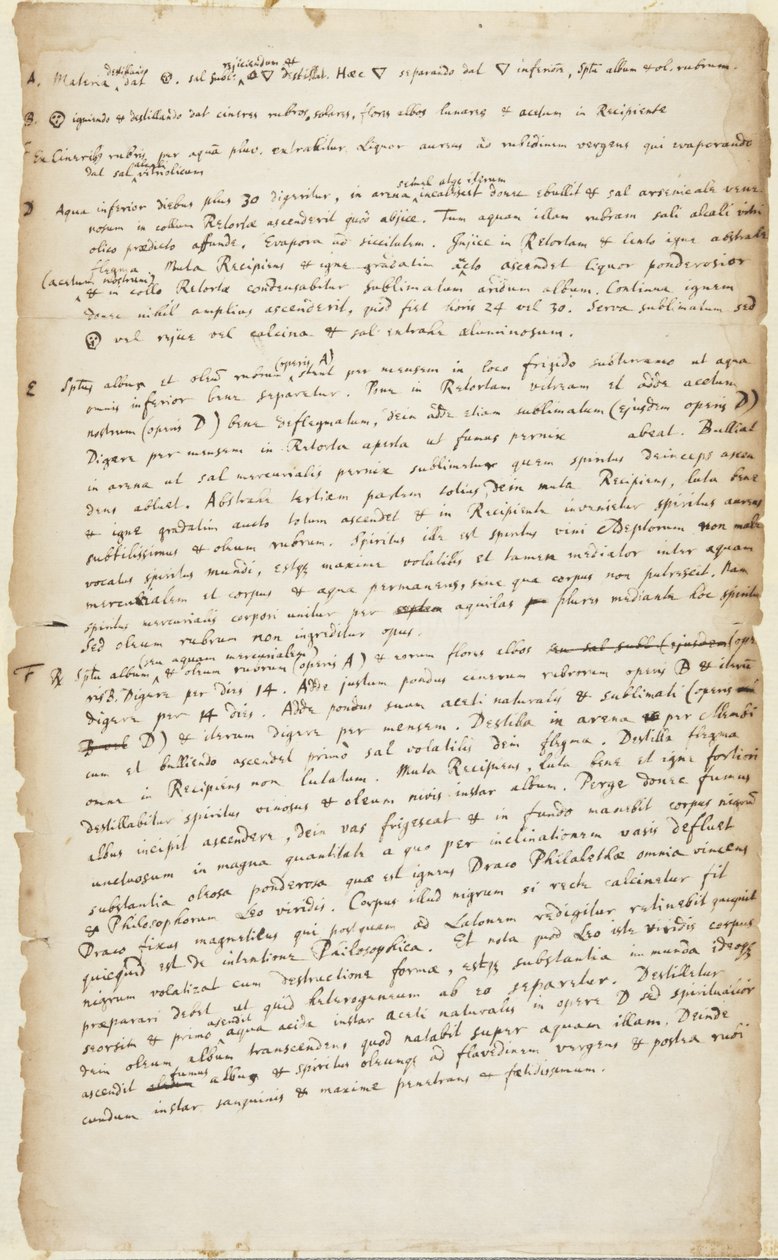 A. Materia destillanda dat 💀. sal subl. rejiciendum & 🜄 destillat. Hæc 🜄 separando dat 🜄 inferiorē, Sptū album & ol. rubrum.
B. 💀 igniendo & destillando dat cineres rubros, solares, flores albos lunares & acetum in Recipiente
Ex Cineribus rubris per aquā pluv. extrahitur Liquor aureus ad rubidinem vergens qui evaporando
dat sal vitriolicum
D Aqua inferior diebus plus 30 digeritur, in arena semel atque iterum incalescit donec ebullit & sal arsenicale vene
nosum in collum Retortæ ascenderit quod abjice. Tum aquam illam rubram sali alcali vitri
olico prædicto affunde. Evapora ad siccitatem. Injice in Retortam & lento igne abstrahe
flegma. Muta Recipiens & igne gradatim aucto ascendet Liquor ponderosior
(acetum nostrum) & in collo Retortæ condensabitur sublimatum aridum album. Continua ignem
donec nihil amplius ascenderit, quod fiet horis 24 vel 30. Serva sublimatum sed
💀 vel rejice vel calcina & sal extrahe aluminosum.
E Sptus albus et oleū rubrum (operis A) stent per mensem in loco frigido subterraneo ut aqua
omnis inferior bene separetur. Pone in Retortam vitream et adde acetum
nostrum (operis D) bene deflegmatum, dein adde etiam sublimatum (ejusdem operis D)
Digere per mensem in Retorta aperta ut fumus pernix abeat. Bulliat
in arena ut sal mercurialis pernix sublimetur quem spiritus deinceps ascen
dens abluet. Abstrahe tertiam partem totius, dein muta Recipiens, luta bene
& igne gradatim aucto totum ascendet & in Recipiente invenietur spiritus aureus
subtilissimus & oleum rubrum. Spiritus ille est spiritus vini Adeptorum non male
vocatus spiritus mundi, estqȝ maxime volatilis et tamen mediator inter aquam
mercurialem et corpus & aqua permanens, sine qua corpus non putrescit. Nam
spiritus mercurialis corpori unitur per septem aquilas plures mediante hoc spiritu
Sed oleum rubrum non ingreditur opus.
F ℞ Sptū album (seu aquam mercurialem) & oleum rubrum (operis A) & eorum flores albos seu sal subl (ejusdem (ope
ris B. Digere per dies 14. Adde justum pondus cinerum rubrorum operis B & iterū
digere per 14 dies. Adde pondus suum aceti naturalis & sublimati (operis
D) & iterum digere per mensem. Destilla in arena per Alembi
cum et bulliendo ascendet primò sal volatilis dein flegma. Destilla flegma
omne in Recipiens non lutatum. Muta Recipiens, luta bene et igne fortiori
destillabitur spiritus vinosus & oleum nivis instar album. Perge donec fumus
albus incipit ascendere, dein vas frigescat & in fundo manebit corpus nigrum
unctuosum in magna quantitate a quo per inclinationem vasis defluet
substantia oleosa ponderosa quæ est igneus Draco Philalethæ omnia vincens
& Philosophorum Leo viridis. Corpus illud nigrum si recte calcinetur fit
Draco fixus magneticus qui postquam ad Latonem redigitur retinebit quicquit
quicquid est de intentione Philosophica. Et nota quod Leo iste viridis corpus
nigrum volatizat cum destructione formæ, estqȝ substantia immunda ideoqȝ
præparari debet ut quid heterogeneum ab eo separetur. Destilletur
seorsim & primò ascendit aqua acida instar aceti naturalis in opere D sed spiritualior
dein oleum album transcendens quod natabit super aquam illam. Deinde
ascendit fumus albus & spiritus oleumqȝ ad flavedinem vergens & postea rubi
cundum instar sanguinis & maxime penetrans & fœtidissimum.